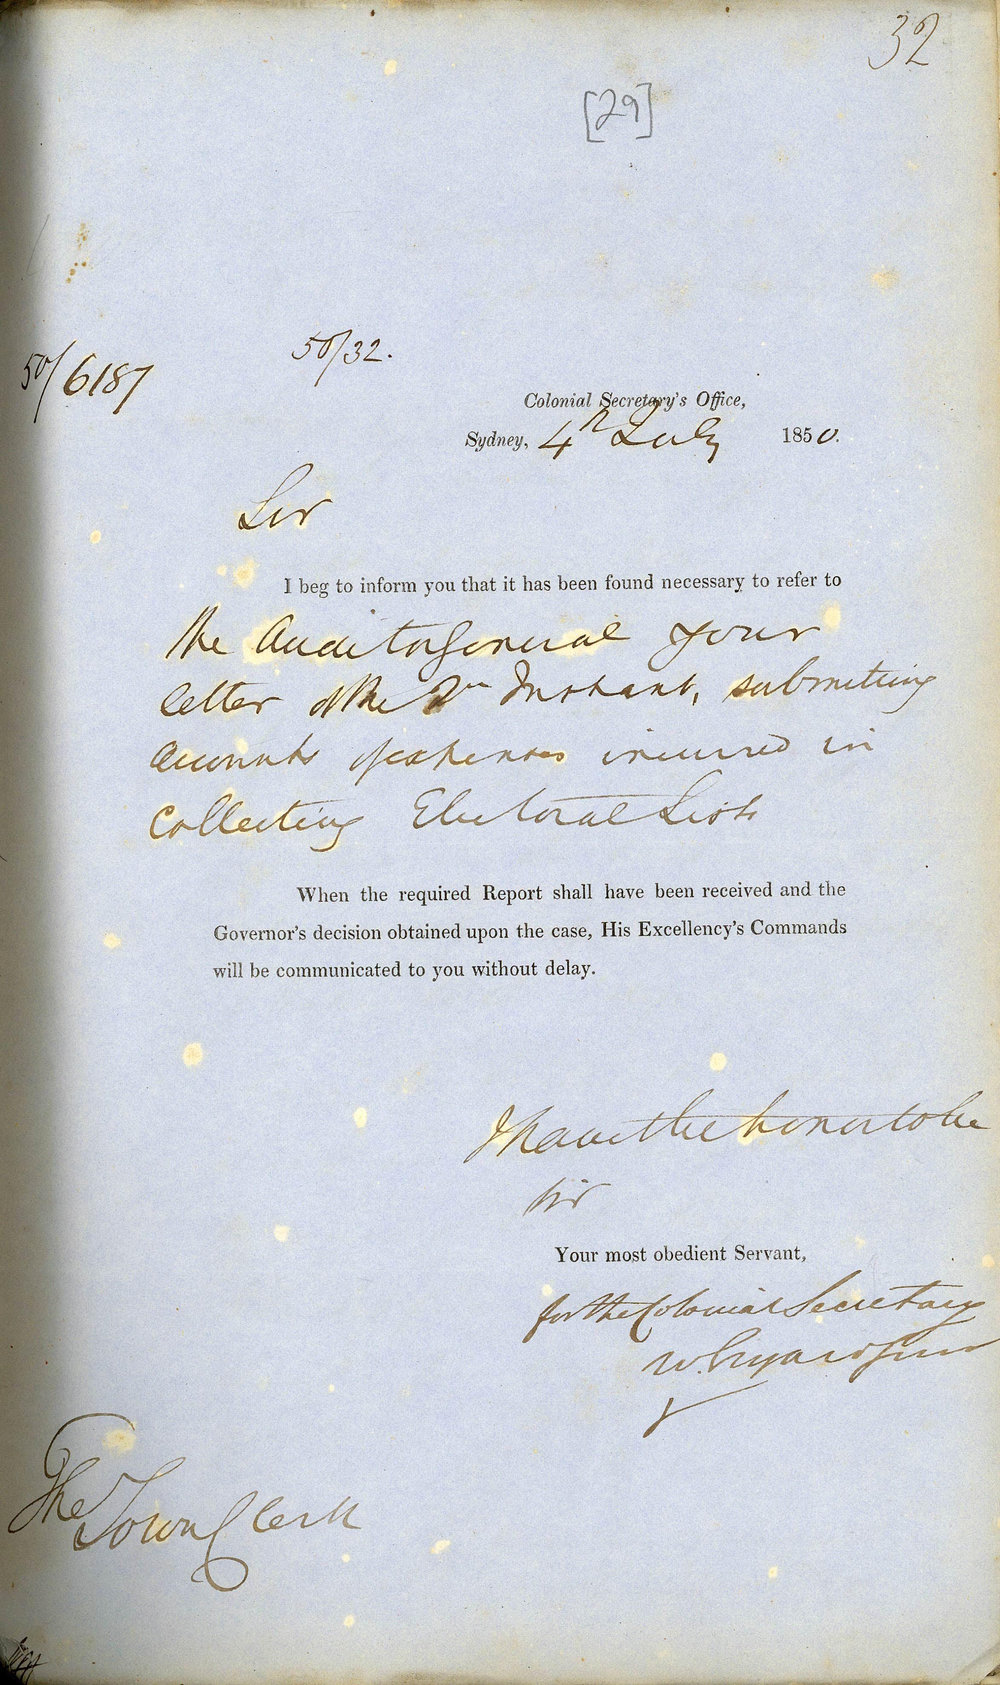 32
[29]
50/6187
50/32.
Colonial Secretary's Office,
Sydney, 4th July 1850.
Sir
I beg to inform you that it has been found necessary to refer to
the Auditor General your
letter of the 2nd Instant, submitting
accounts of expenses incurred in
Collecting Electoral Lists
When the required Report shall have been received and the
Governor's decision obtained upon the case, His Excellency's Commands
will be communicated to you without delay.
I have the honor to be
Sir
Your most obedient Servant,
for the Colonial Secretary
W.
The Town Clerk